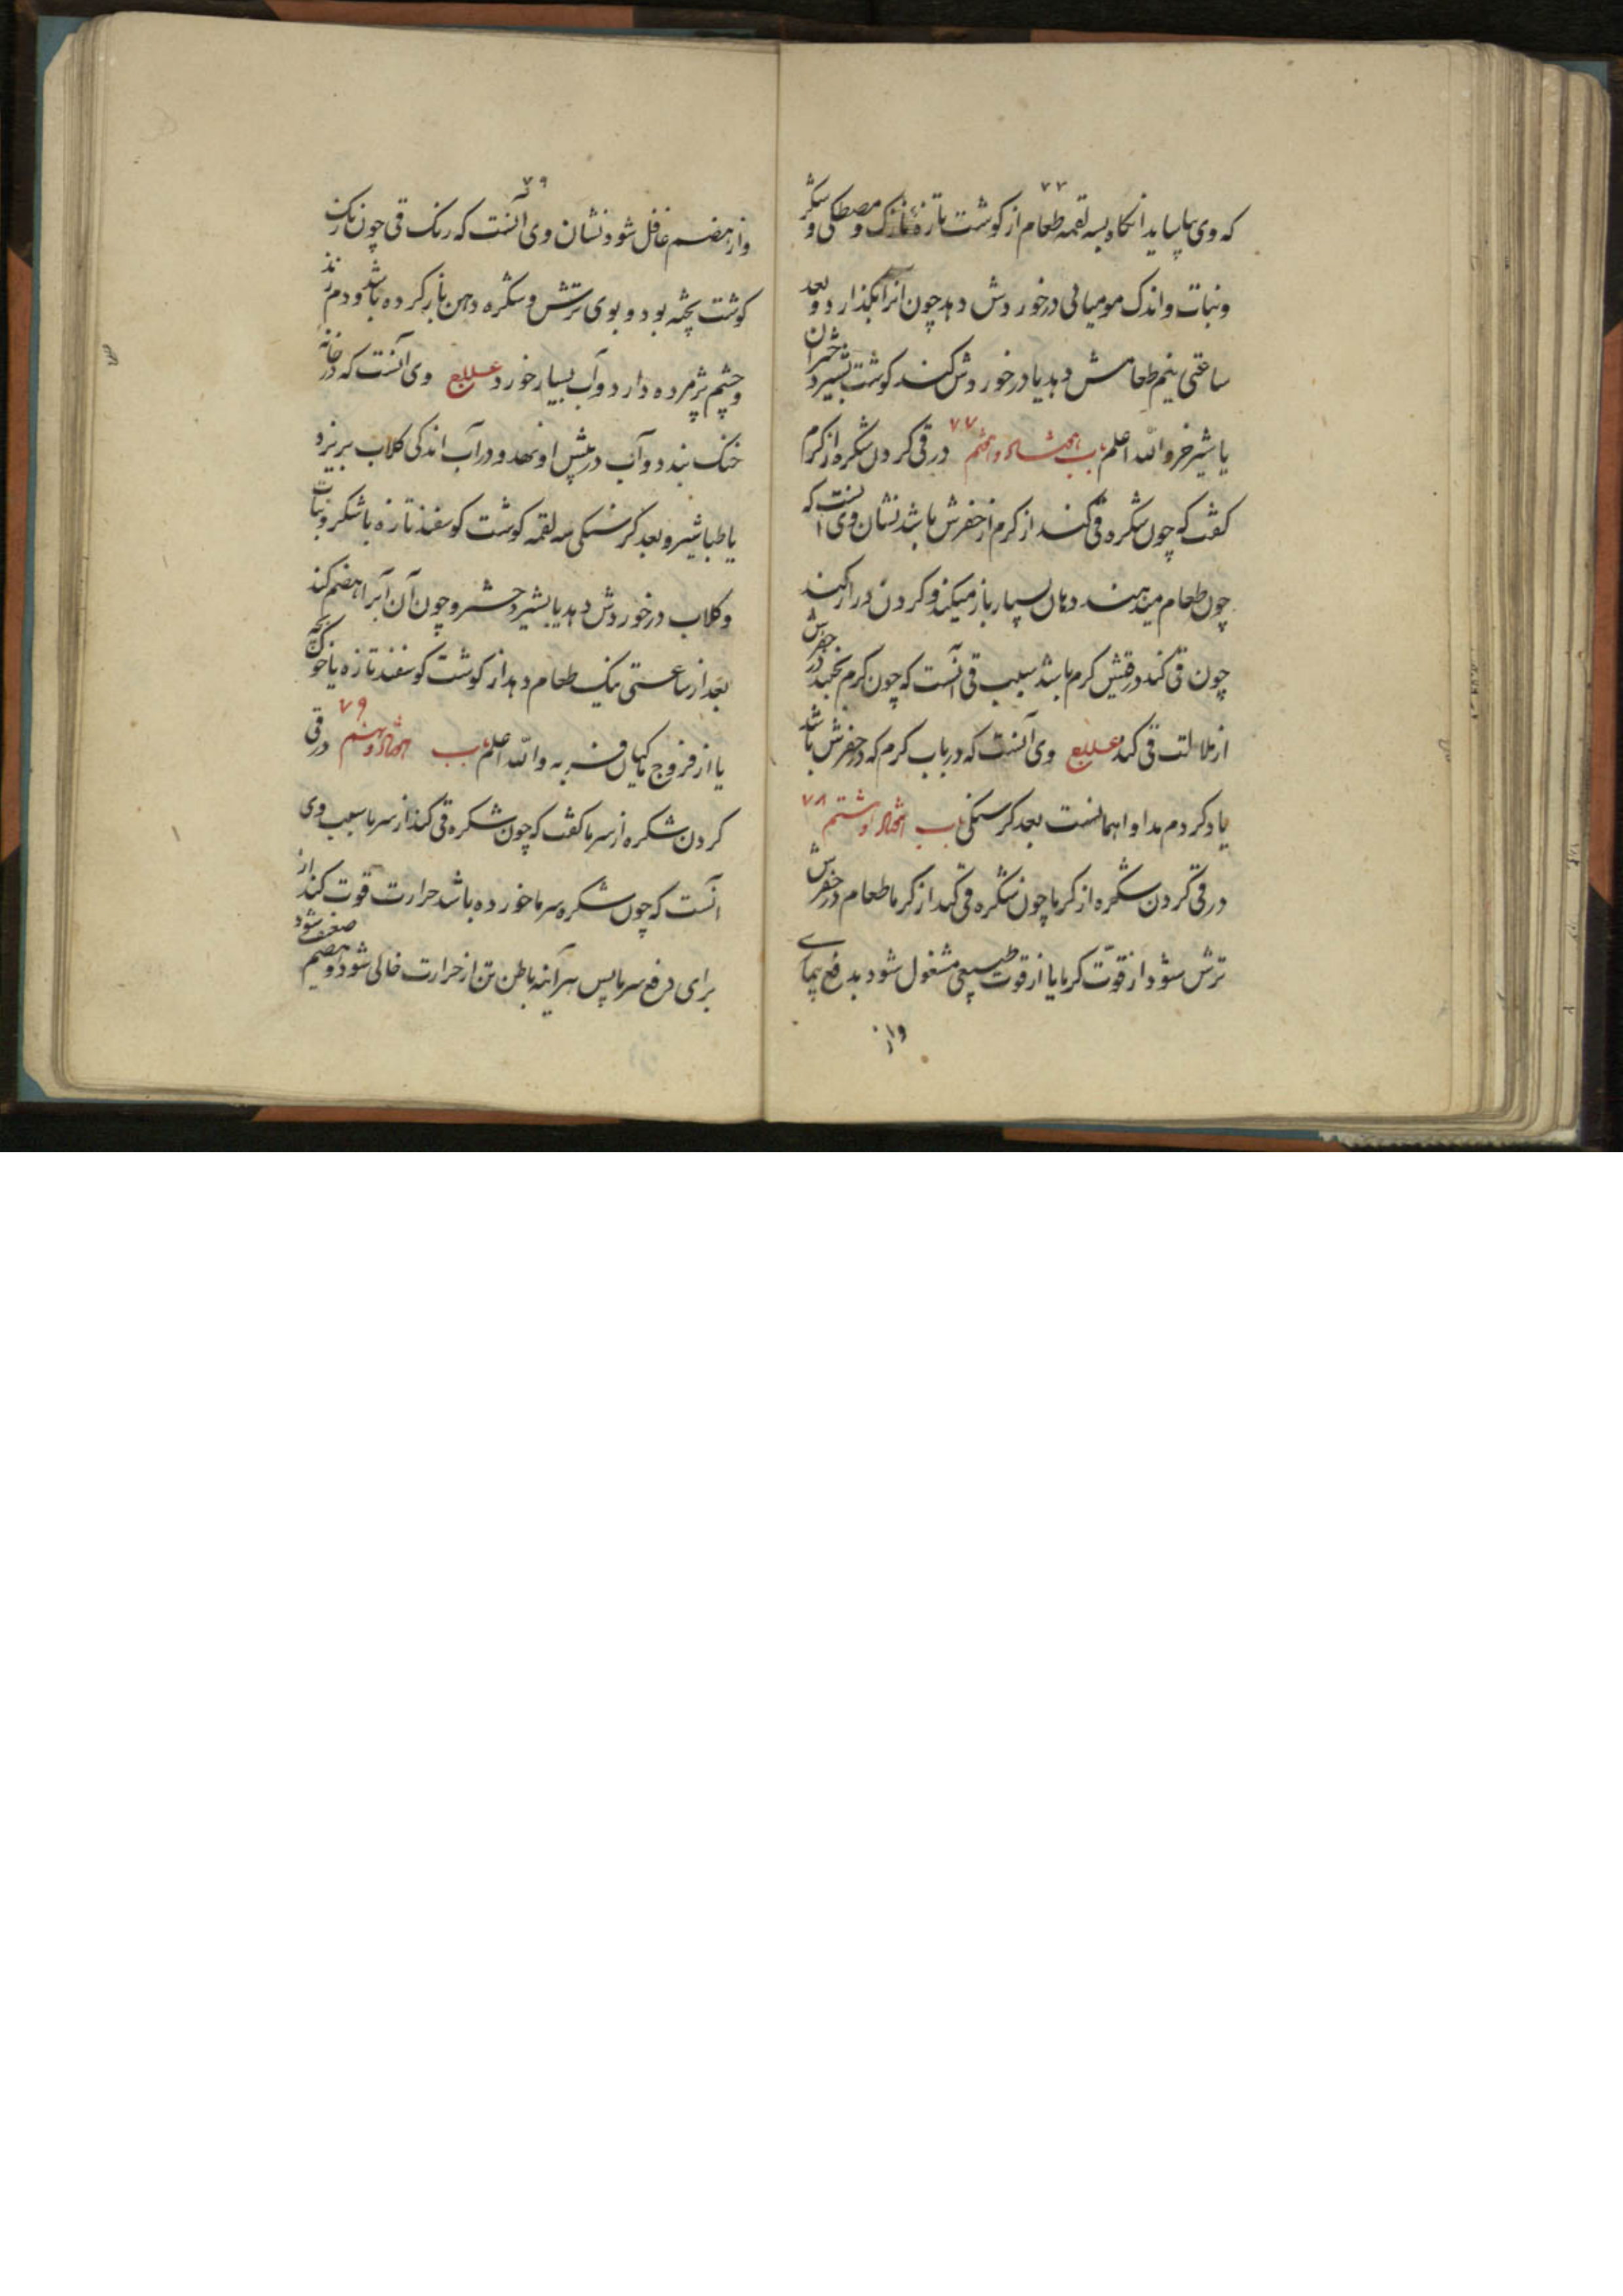 ۷۷
که وی بیاساید انکاه بسه لقمه طعام از کوشت تازه نازک و مصطکی و شکر
ونبات و اندک مومیائی در خوردش دهد چون انرا بکذارد و بعد
ساعتی نیم طعامش دهد یا در خوردش کند کوشت بشیر دختران
یا شیر خر والله اعلم باب هفتاد و هفتم ۷۷ در قی کردن شکره از کرم
کفت که چون شکره قی کند از کرم از حفرش باشد نشان وی انست که
چون طعام میدهند دهان بسیار باز میکند و کردن دراز کند
چون قی کند در قیش کرم باشد سبب قی آنست که چون کرم بجنبد در حفرش
از ملالت قی کند علاج وی آنست که در باب کرم که در حفرش باشد
یاد کردم مداوا همانست بعد کرسنکی باب هفتاد و هشتم ۷۸
در قی کردن شکره از کرما چون شکره قی کند از کرما طعام در حفرش
ترش شود از قوت کرما یا از قوت طبیعی مشغول شود بدفع بیماری
واز
۷۹
واز هضم غافل شود نشان وی آنست که رنک قی چون رنک
کوشت پخته بود و بوی ترش و شکره دهن باز کرده باشد و دم زند
و چشم پژمرده دارد و آب بسیار خورد علاج وی آنست که در خانه
خنک بندد و آب در پیش او نهد و در آب اندکی کلاب بریزد
یا طباشیر و بعد کرسنکی سه لقمه کوشت کوسفند تازه با شکر و نبات
و کلاب در خوردش دهد یا بشیر دختر و چون آن آنرا هضم کند
بعد از ساعتی نیک طعام دهد از کوشت کوسفند تازه یا خوک بچه
یا از فروج ماکیان فربه والله اعلم باب هفتاد و نهم ۷۹ در قی
کردن شکره از سرما کفت که چون شکره قی کند از سرما سبب وی
انست که چون شکره سرما خورده باشد حرارت قوت کند از
برای دفع سرما پس هرآینه باطن تن از حرارت خالی شود و هضم ضعیف شود